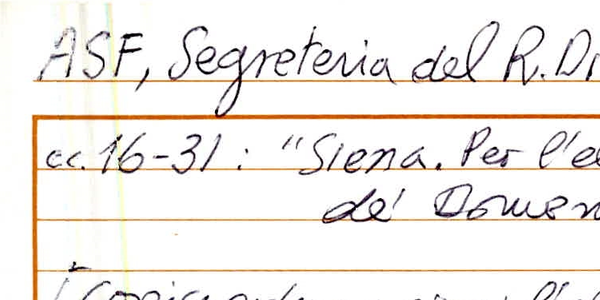 ASF, Segreteria del R. Di
cc. 16-31: "Siena. Per l'e
de' Domen